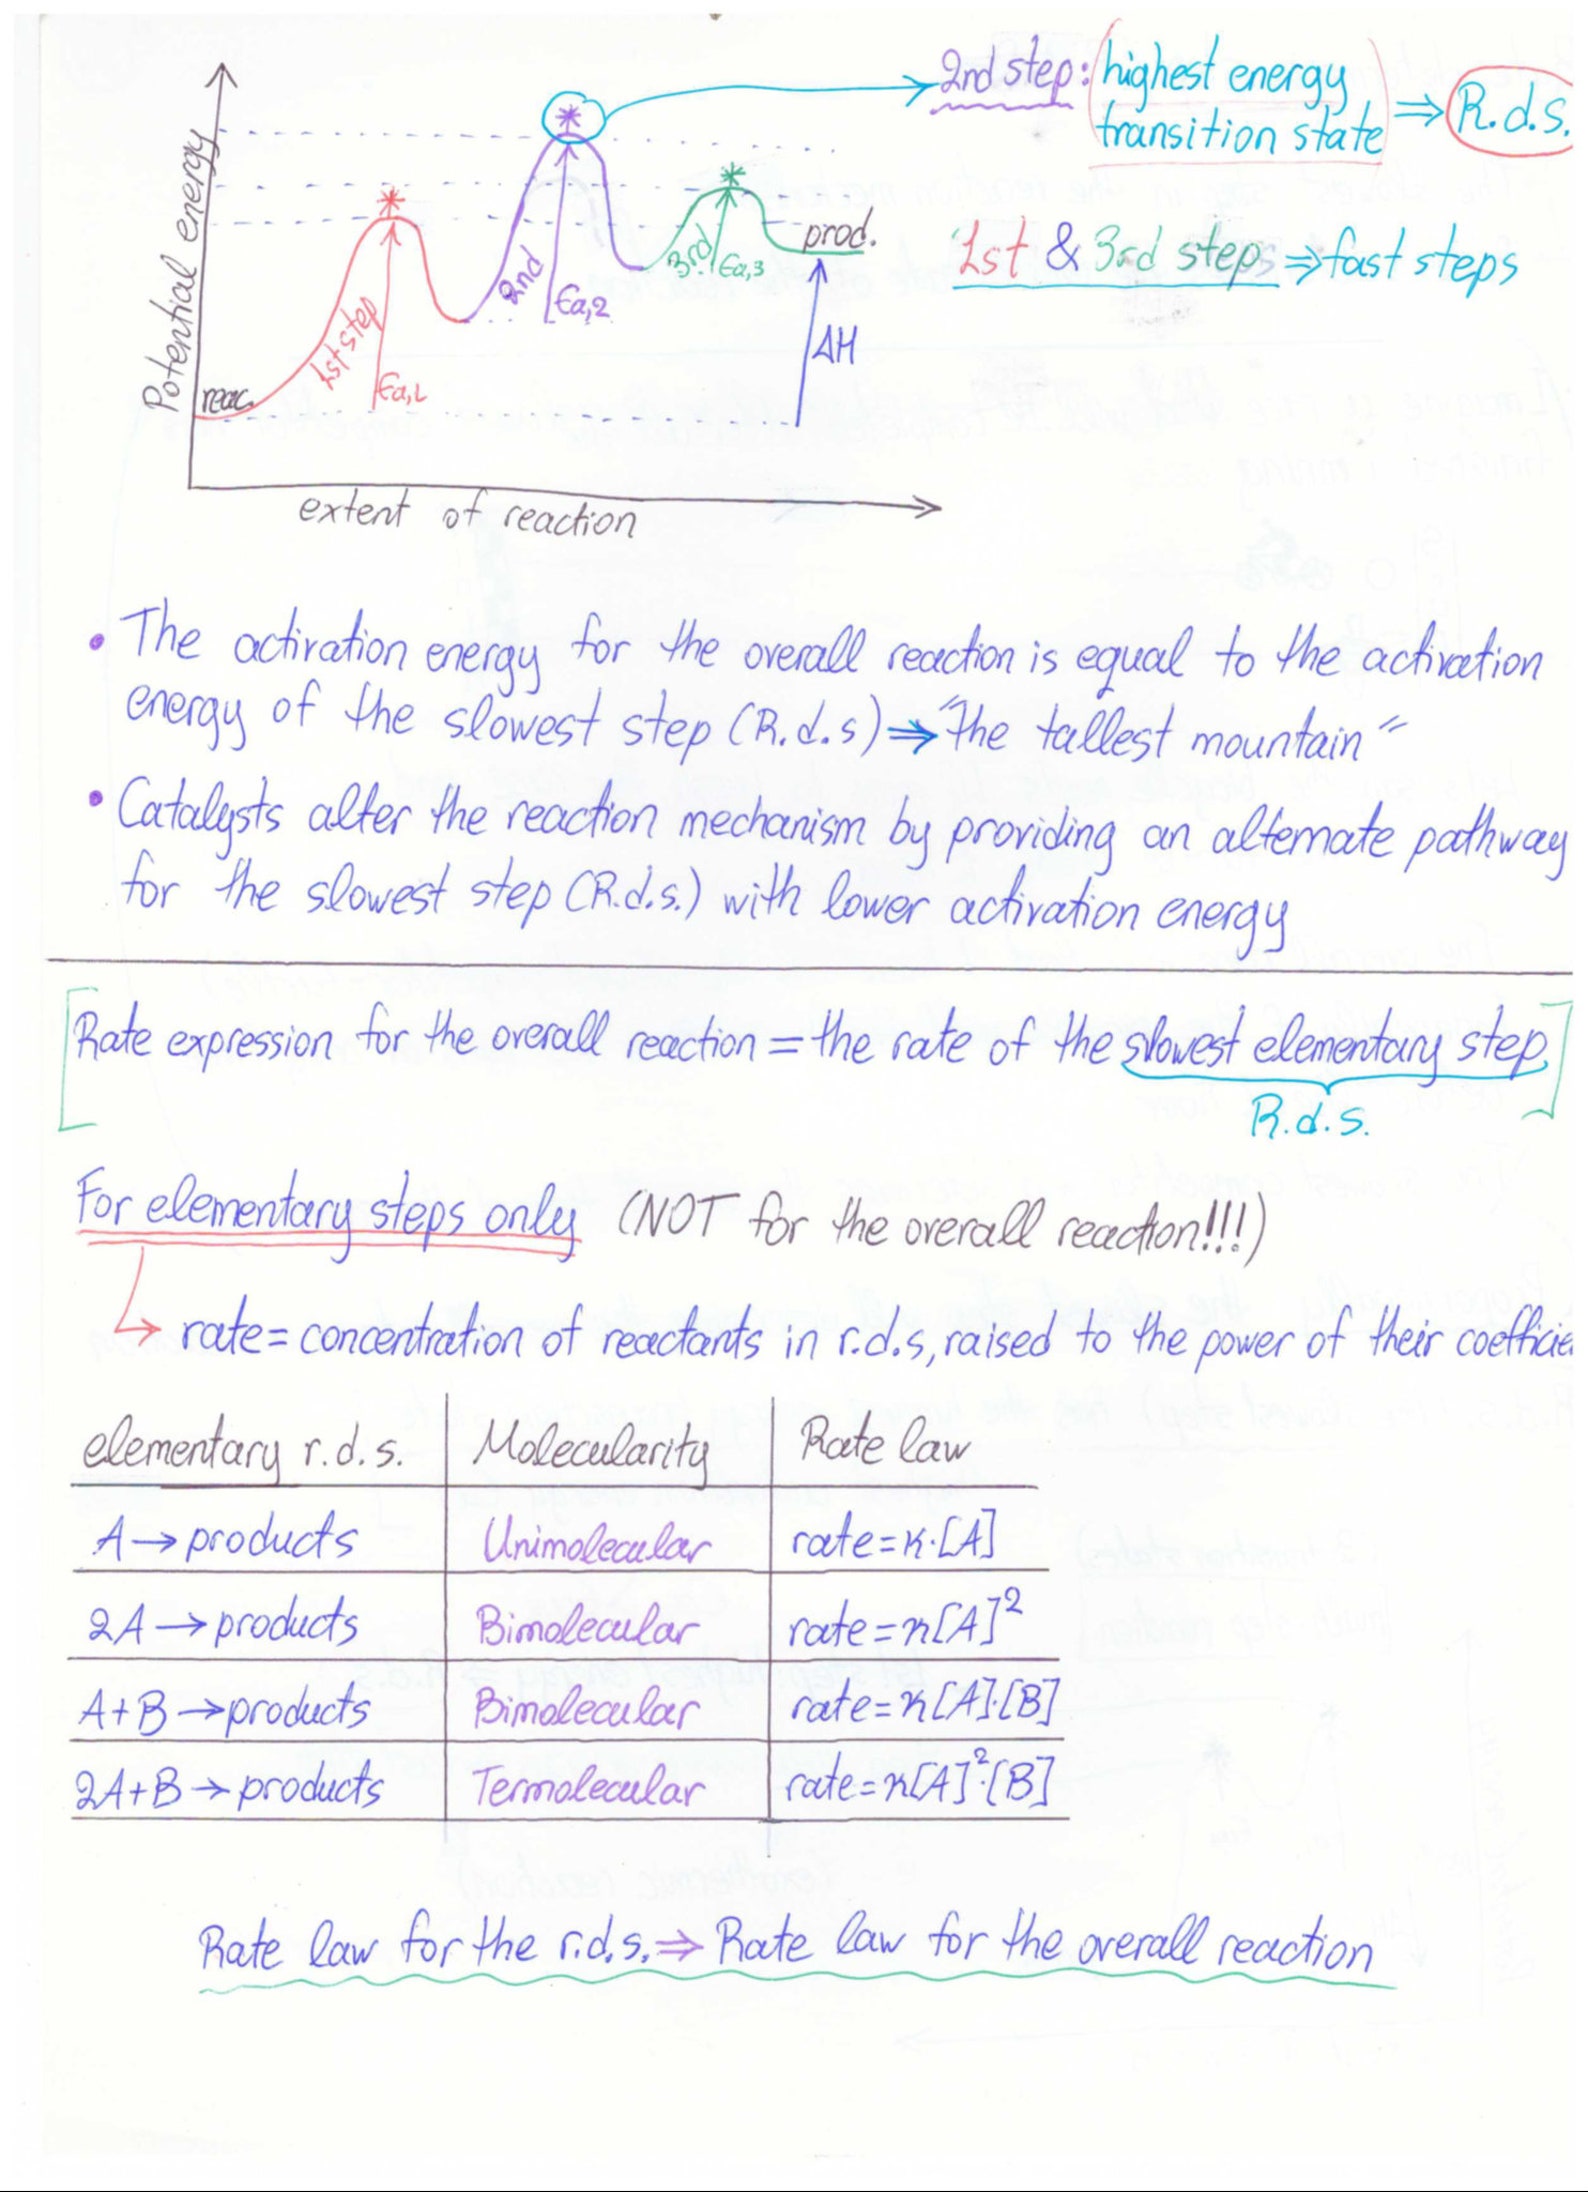 2nd step: highest energy
transition state ⇒ R.d.s.
1st & 3rd steps ⇒ fast steps
Potential energy
reac.
1st step
Ea,1
2nd
Ea,2
3rd
Ea,3
prod.
ΔH
extent of reaction
• The activation energy for the overall reaction is equal to the activation
energy of the slowest step (R.d.s) ⇒ "the tallest mountain"
• Catalysts alter the reaction mechanism by providing an alternate pathway
for the slowest step (R.d.s.) with lower activation energy
[Rate expression for the overall reaction = the rate of the slowest elementary step.]
R.d.s.
For elementary steps only (NOT for the overall reaction!!!)
↳ rate = concentration of reactants in r.d.s, raised to the power of their coefficie
elementary r.d.s. Molecularity Rate law
A → products Unimolecular rate = k·[A]
2A → products Bimolecular rate = k[A]²
A+B → products Bimolecular rate = k[A]·[B]
2A+B → products Termolecular rate = k[A]²·[B]
Rate law for the r.d.s. ⇒ Rate law for the overall reaction